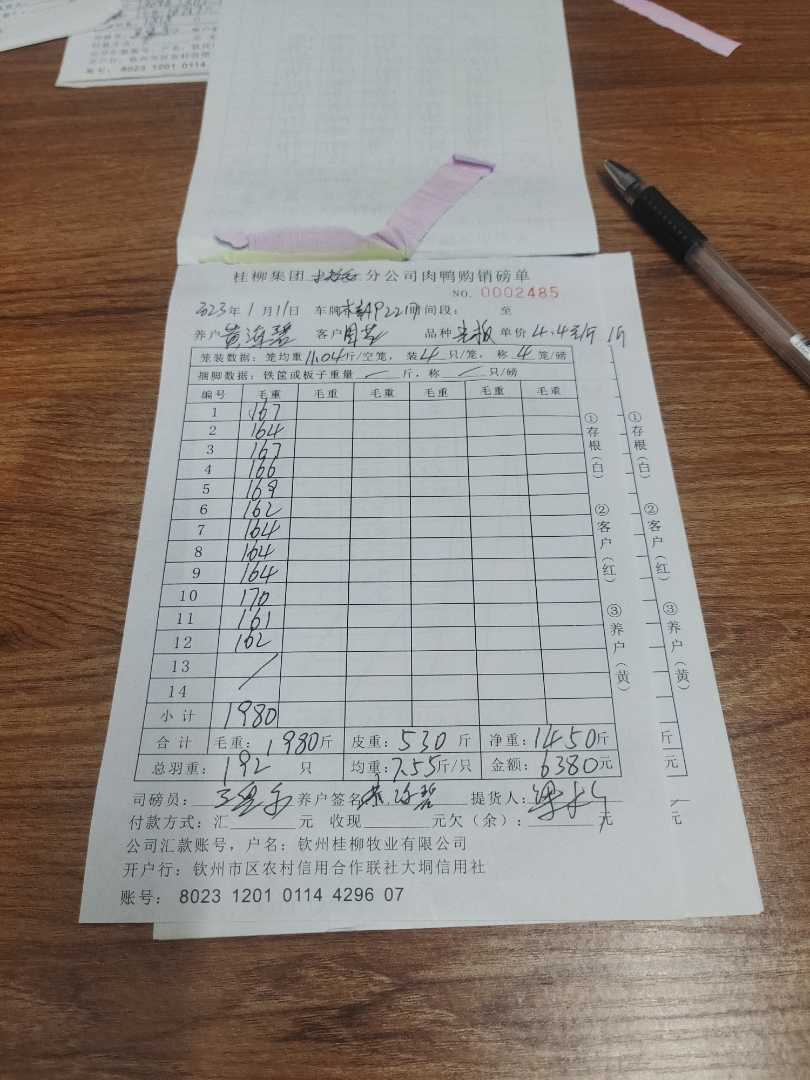 账号： 8023 1201 0114
桂柳集团 分公司肉鸭购销磅单
NO. 0002485
2023年 1 月 11日 车牌 时间段： 至
养户 黄海碧 客户 品种 单价 4.4元/斤
笼装数据：笼均重 11.04 斤/空笼， 装 4 只/笼， 称 4 笼/磅
捆脚数据：铁筐或板子重量 / 斤，称 / 只/磅
编号 毛重 毛重 毛重 毛重 毛重 毛重
1 167
2 164
3 167
4 166
5 169
6 162
7 164
8 164
9 164
10 170
11 161
12 162
13 /
14
小 计 1980
合 计 毛重：1980斤 皮重：530 斤 净重：1450斤
总羽重：192 只 均重：7.55斤/只 金额：6380元
司磅员： 养户签名 黄海碧 提货人：
付款方式：汇 元 收现 元欠（余）： 元
公司汇款账号，户名：钦州桂柳牧业有限公司
开户行：钦州市区农村信用合作联社大垌信用社
账号： 8023 1201 0114 4296 07
①存根（白） ②客户（红） ③养户（黄）
①存根（白） ②客户（红） ③养户（黄）
斤
元
元